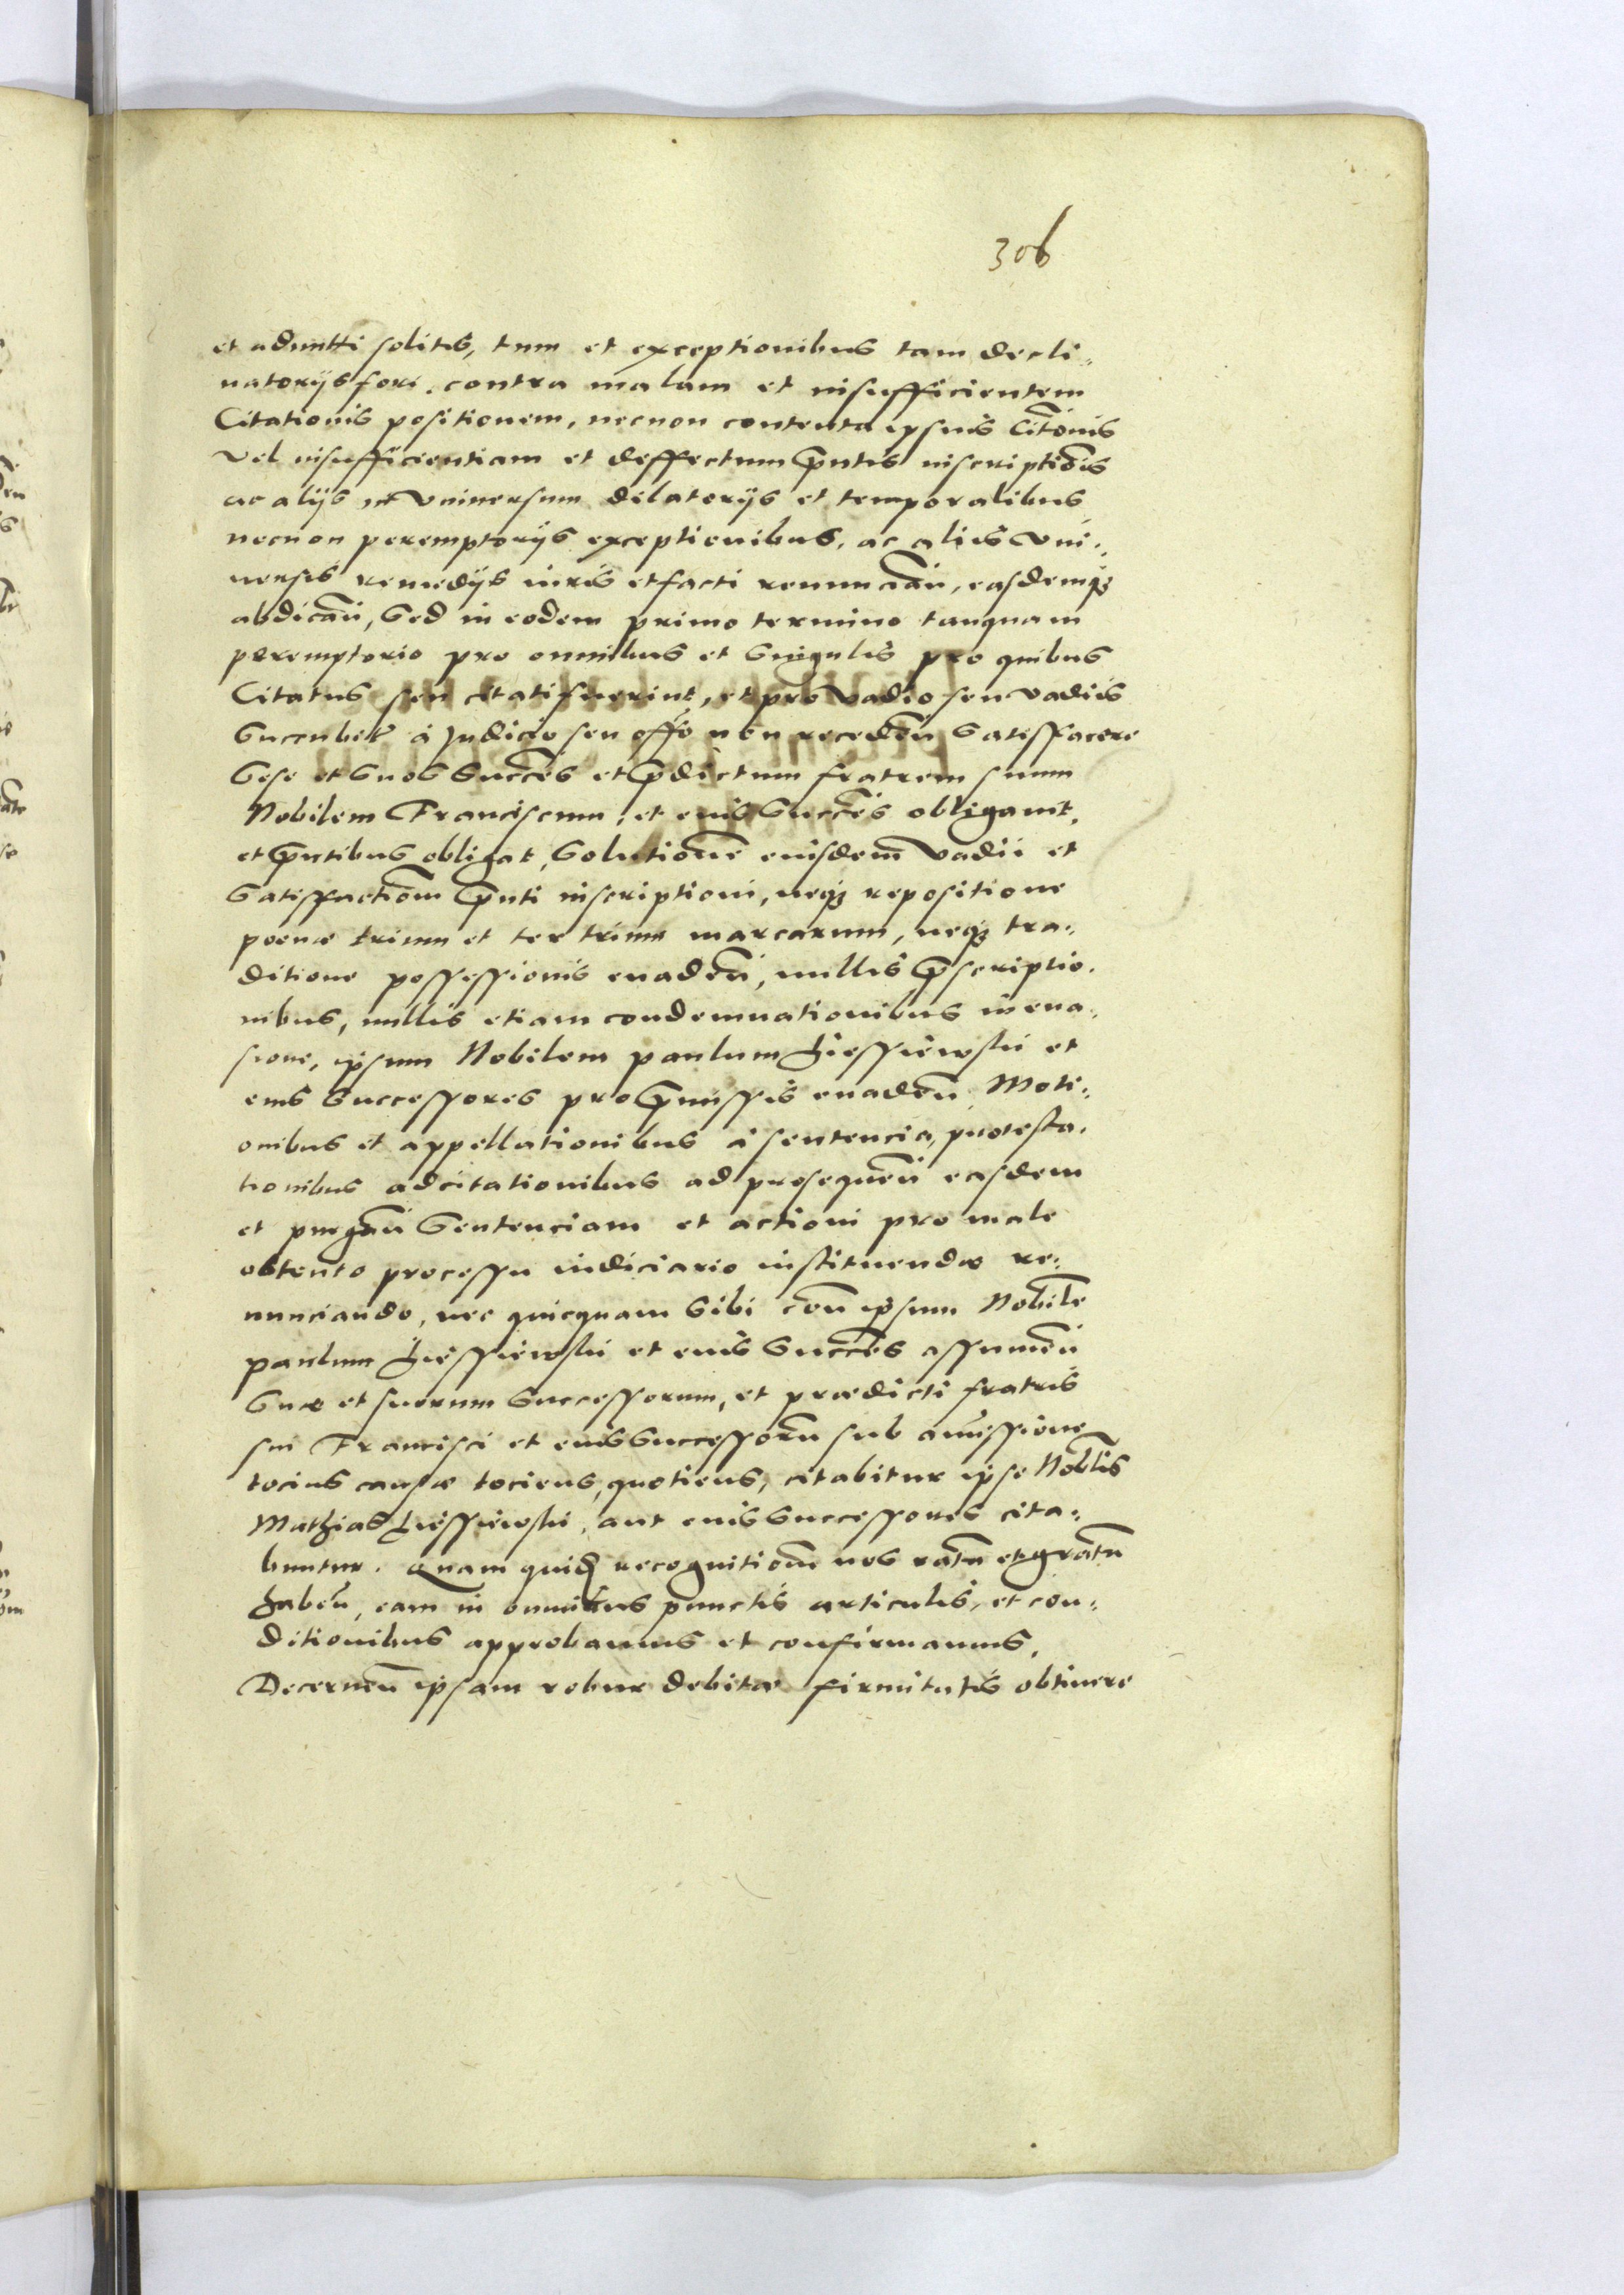 306
et admitti solitis, tum et exceptionibus tam decli-
natorijs fori. contra malam et insufficientem
Citationis positionem, necnon contenta ipsius Cit͠onis
vel insufficientiam et deffectum p͠ntis inscripti͠onis
ac alijs in vniuersum dilatorijs et temporalibus
necnon peremptorijs exceptionibus, ac aliis vni-
uersis remedijs iuris et facti renunciañ, easdemqꝫ
abdicañ, Sed in eodem primo termino tanquam
peremptorio pro omnibus et Singulis pro quibus
Citatus seu citati fuerint, et pro vadio seu vadiis
Succubet͠ à Judicio seu off͠o non recedeñ Satisfacere
Sese et Suos Succ͠es et p͠dictum fratrem suum
Nobilem Franciscum, et eius Succ͠es obligauit,
et p͠ntibus obligat, Solution͠e eiusdem vadii et
Satisfacti͠om p͠nti inscriptioni, neqꝫ repositione
poenæ trium et ter trium marcarum, neqꝫ tra-
ditione possessionis euadeñ, nullis p͠scriptio-
nibus, nullis etiam condemnationibus in eua-
sione, ipsum Nobilem paulum Liessiewski et
eius Successores pro p͠missis euadeñ Moti-
onibus et appellationibus à sentencia, protesta-
tionibus adcitationibus ad prosequeñ easdem
et purgañ Sentenciam et actioni pro male
obtento processu iudiciario instituendæ re-
nunciando, nec quicquam Sibi co͠n ipsum Nobil͠e
paulum Liessiewski et eius Succ͠es assumeñ
Suæ et suorum Successorum, et prædicti fratris
sui Francisci et eius Successor͠u sub amissione
tocius causæ tociens, quotiens, citabitur ipse Nobl͠is
Mathias Liessiewski, aut eius Successores cita-
buntur. Quam quid͠ recogniti͠om nos rat͠u et grat͠u
habeñ, eam in omnibus punctis articulis, et con-
ditionibus approbamus et confirmamus,
Decerneñ ipsam robur debitæ firmitatis obtinere